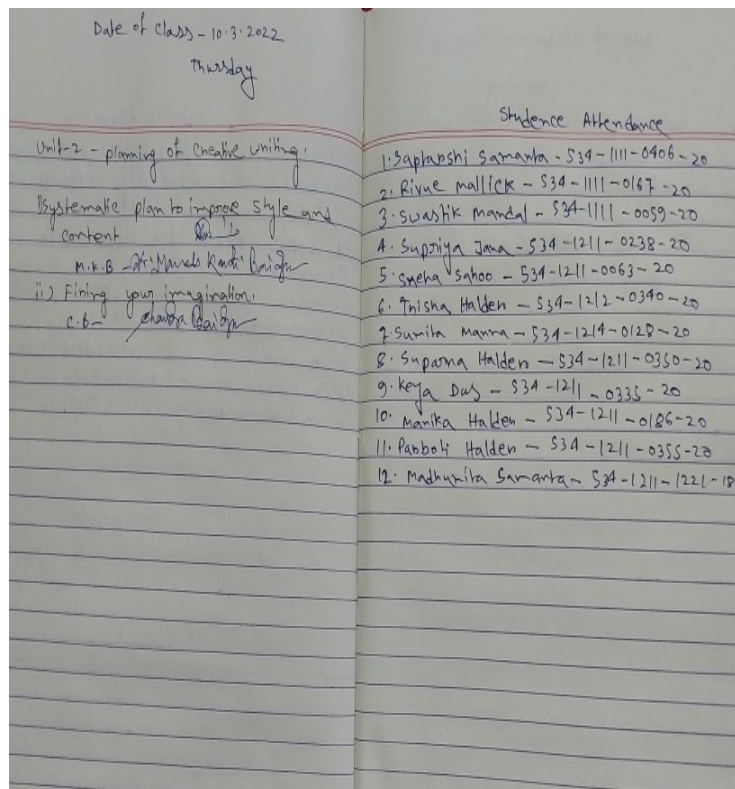 Date of class - 10.3.2022
Thursday
Unit-2 - planning of creative writing.
i) systematic plan to improve style and
content
M.K.B -
ii) Firing your imagination.
C.B-
Studence Attendance
1. Saptarshi Samanta - 534-1111-0406-20
2. Rivue mallick - 534-1111-0167-20
3. Swastik Mandal - 534-1111-0059-20
4. Supriya Jana - 534-1211-0238-20
5. Sneha Sahoo - 534-1211-0063-20
6. Trisha Halder - 534-1212-0340-20
7. Sumita Manna - 534-1214-0128-20
8. Suparna Halder - 534-1211-0350-20
9. Keya Das - 534-1211-0335-20
10. Manika Halder - 534-1211-0186-20
11. Parboti Halder - 534-1211-0355-20
12. Madhumita Samanta - 534-1211-1221-18